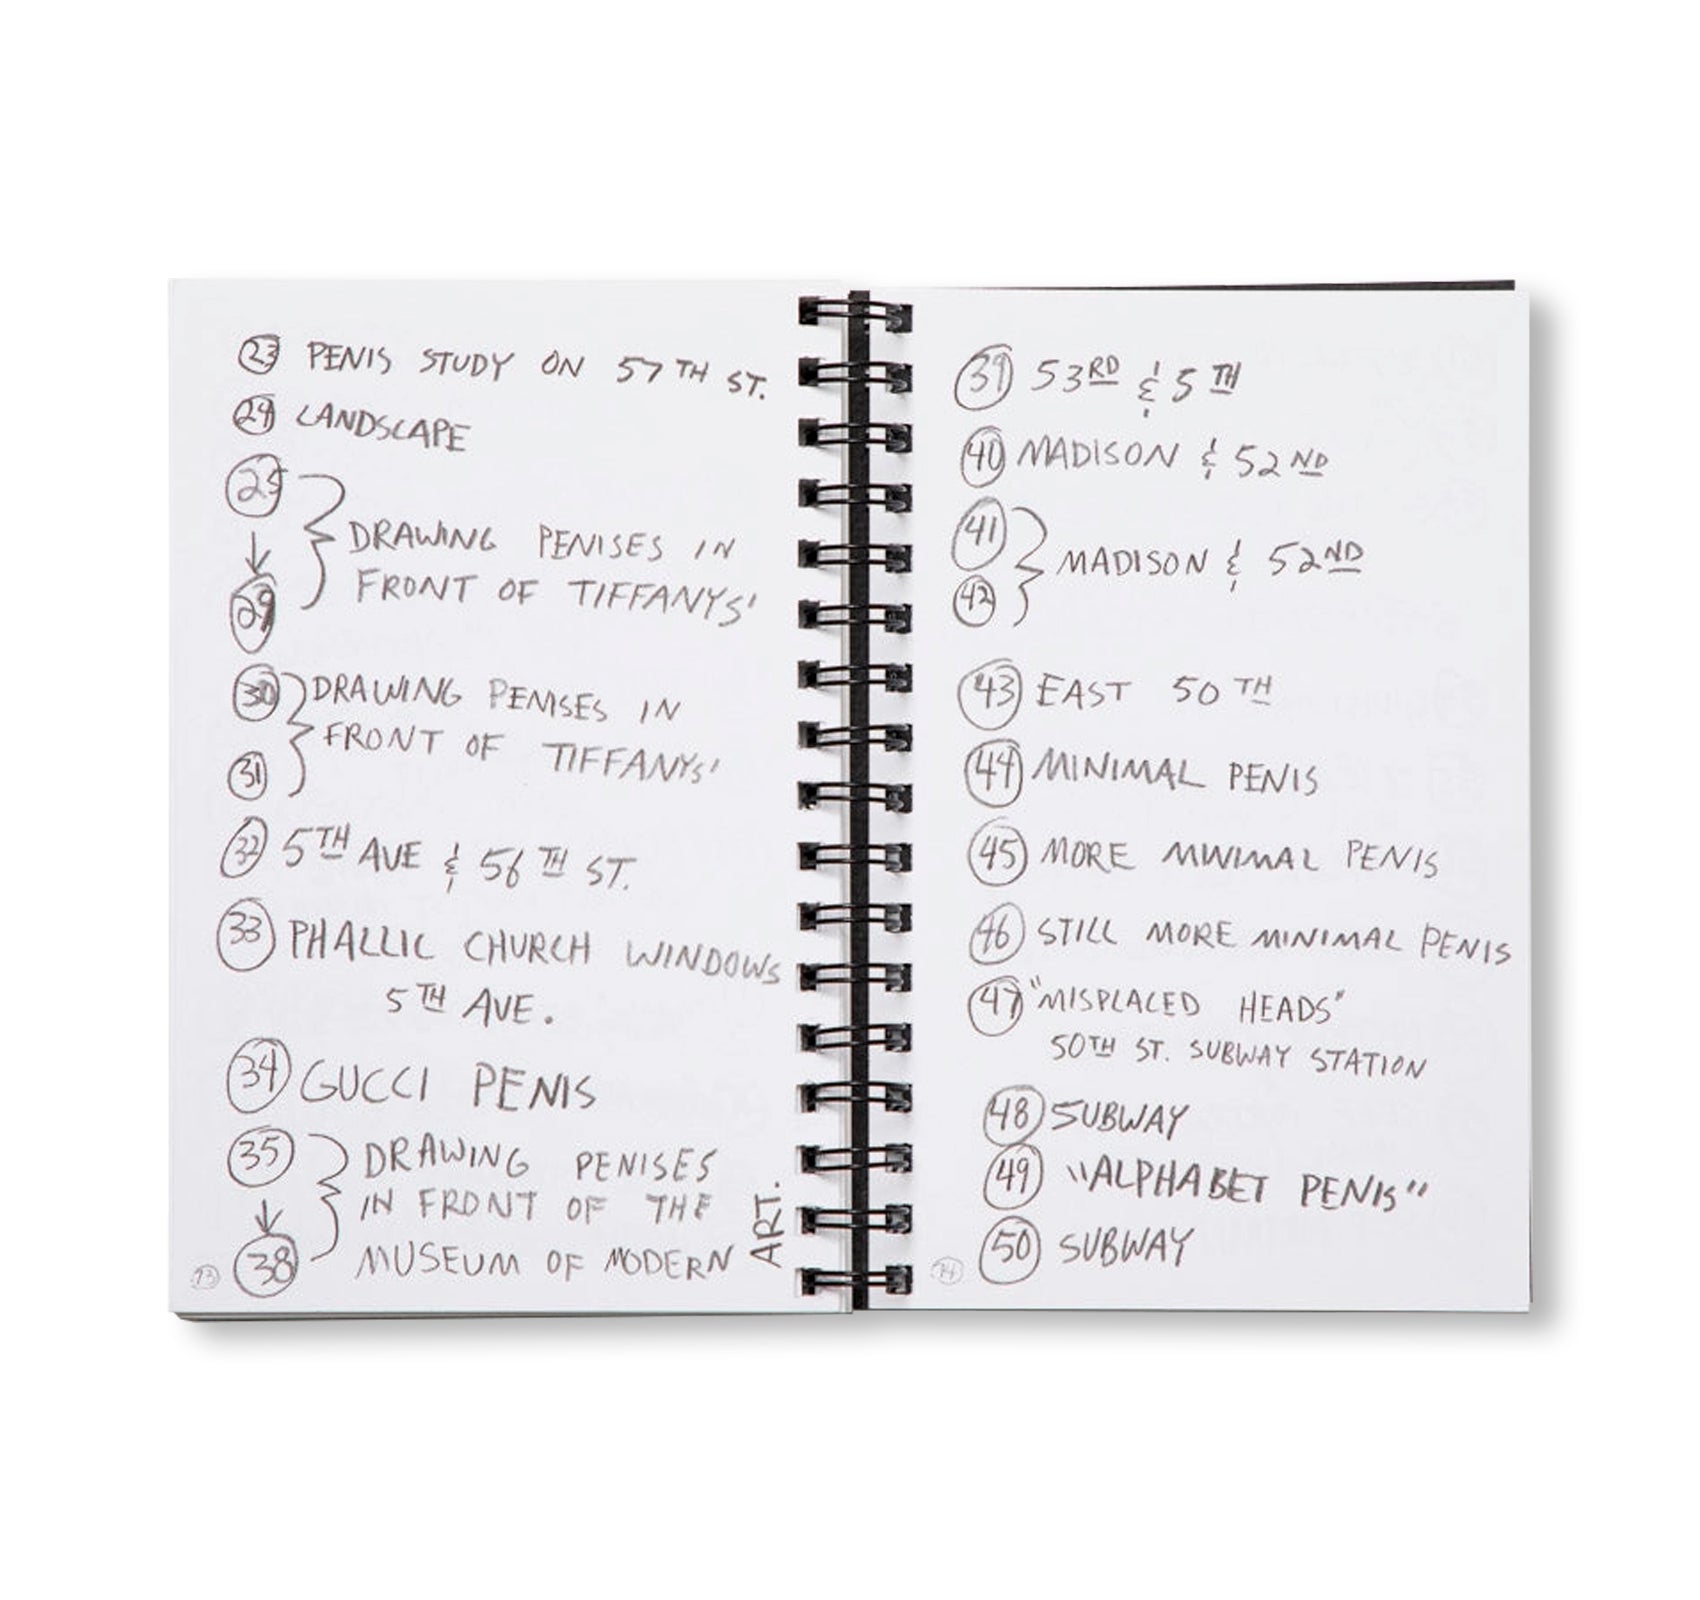 23 PENIS STUDY ON 57TH ST.
24 LANDSCAPE
25
↓
29
DRAWING PENISES IN
FRONT OF TIFFANYS'
30
31
DRAWING PENISES IN
FRONT OF TIFFANYS'
32 5TH AVE & 56TH ST.
33 PHALLIC CHURCH WINDOWS
5TH AVE.
34 GUCCI PENIS
35
↓
38
DRAWING PENISES
IN FRONT OF THE
MUSEUM OF MODERN
ART.
73
39 53RD & 5TH
40 MADISON & 52ND
41
42
MADISON & 52ND
43 EAST 50TH
44 MINIMAL PENIS
45 MORE MINIMAL PENIS
46 STILL MORE MINIMAL PENIS
47 "MISPLACED HEADS"
50TH ST. SUBWAY STATION
48 SUBWAY
49 "ALPHABET PENIS"
50 SUBWAY
74